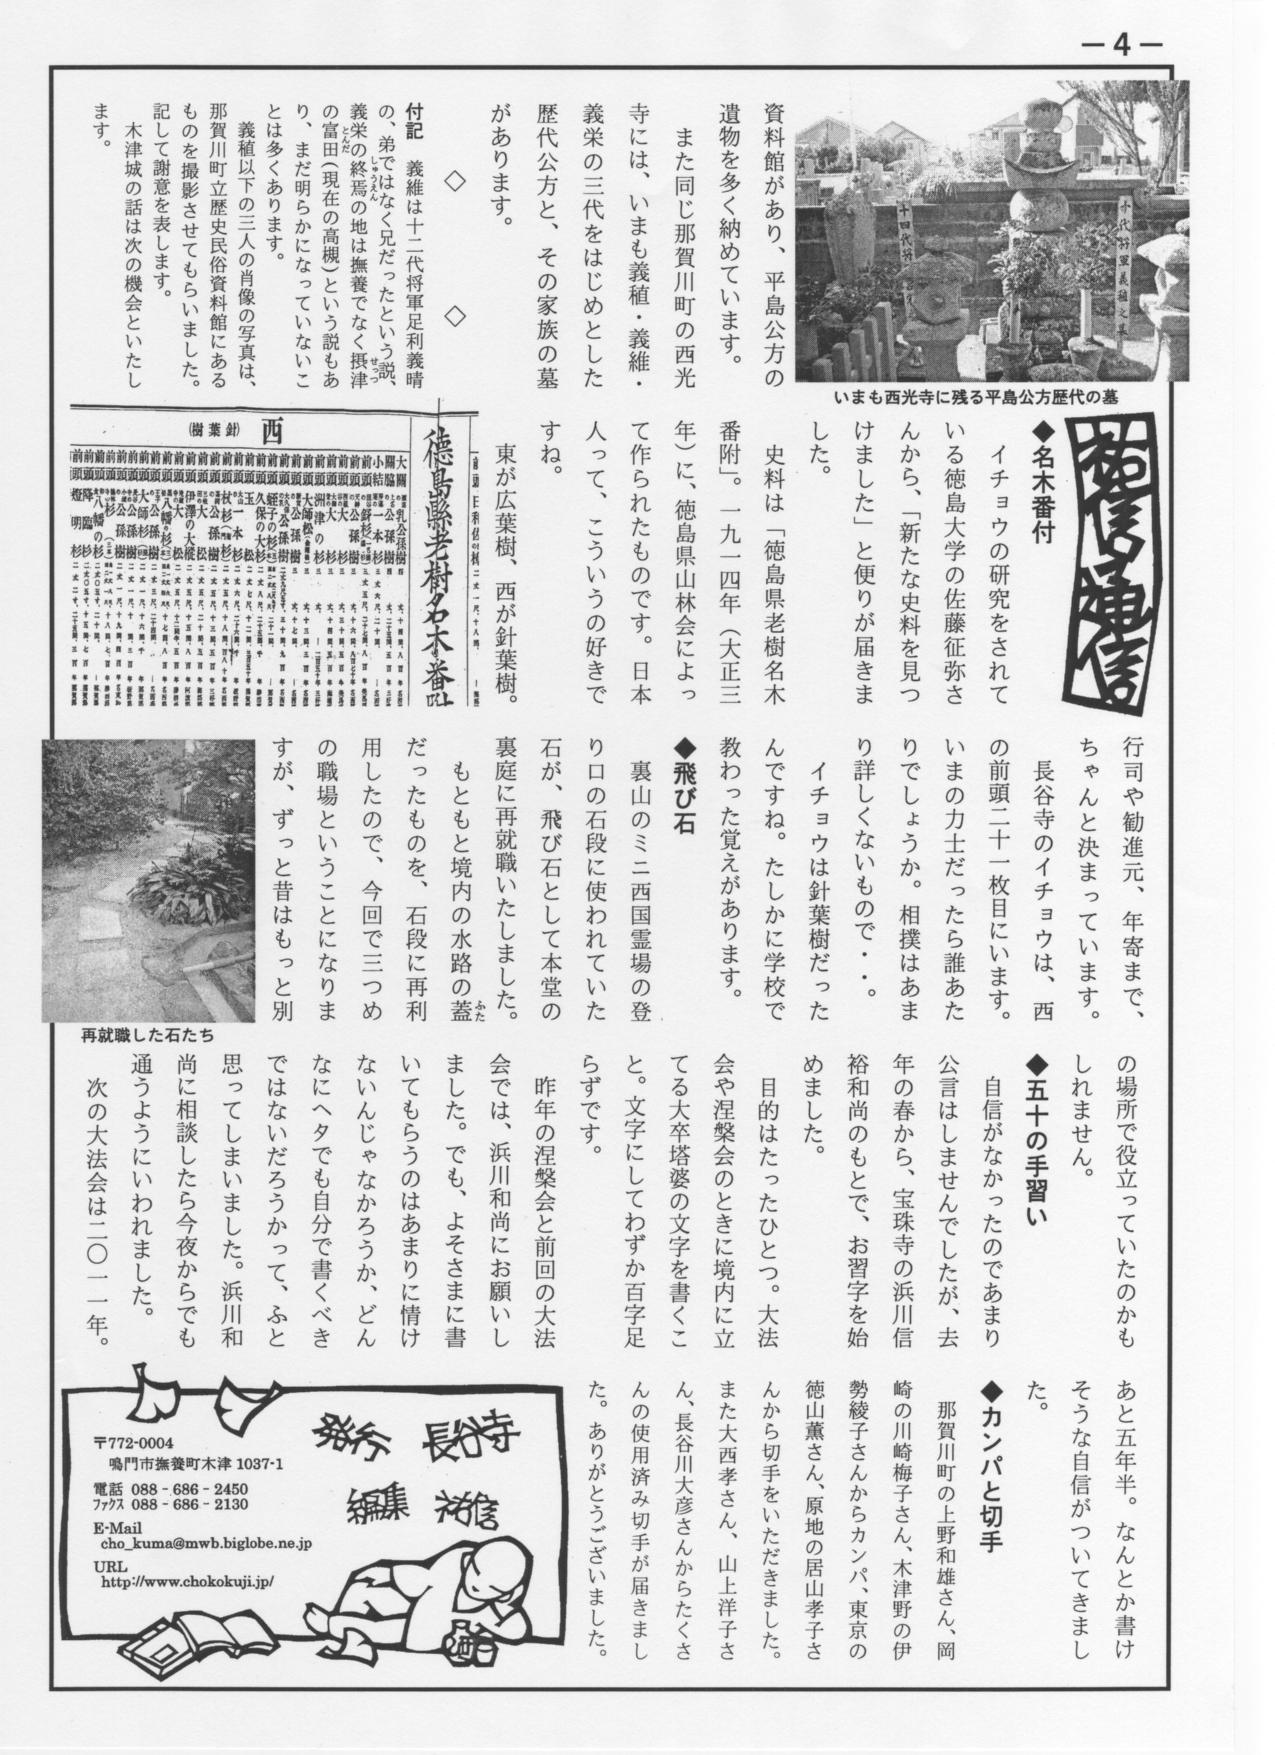 －4－
資料館があり、平島公方の
遺物を多く納めています。
また同じ那賀川町の西光
寺には、いまも義稙・義維・
義栄の三代をはじめとした
歴代公方と、その家族の墓
があります。
◇　◇
付記　義維は十二代将軍足利義晴
の、弟ではなく兄だったという説、
義栄の終焉の地は撫養でなく摂津
の富田（現在の高槻）という説もあ
り、まだ明らかになっていないこ
とは多くあります。
義稙以下の三人の肖像の写真は、
那賀川町立歴史民俗資料館にある
ものを撮影させてもらいました。
記して謝意を表します。
木津城の話は次の機会といたし
ます。
いまも西光寺に残る平島公方歴代の墓
祐信通信
◆名木番付
イチョウの研究をされて
いる徳島大学の佐藤征弥さ
んから、「新たな史料を見つ
けました」と便りが届きま
した。
史料は「徳島県老樹名木
番附」。一九一四年（大正三
年）に、徳島県山林会によっ
て作られたものです。日本
人って、こういうの好きで
すね。
東が広葉樹、西が針葉樹。
徳島縣老樹名木番附
西
（針葉樹）
行司や勧進元、年寄まで、
ちゃんと決まっています。
長谷寺のイチョウは、西
の前頭二十一枚目にいます。
いまの力士だったら誰あた
りでしょうか。相撲はあま
り詳しくないもので・・。
イチョウは針葉樹だった
んですね。たしかに学校で
教わった覚えがあります。
◆飛び石
裏山のミニ西国霊場の登
り口の石段に使われていた
石が、飛び石として本堂の
裏庭に再就職いたしました。
もともと境内の水路の蓋
だったものを、石段に再利
用したので、今回で三つめ
の職場ということになりま
すが、ずっと昔はもっと別
再就職した石たち
の場所で役立っていたのかも
しれません。
◆五十の手習い
自信がなかったのであまり
公言はしませんでしたが、去
年の春から、宝珠寺の浜川信
裕和尚のもとで、お習字を始
めました。
目的はたったひとつ。大法
会や涅槃会のときに境内に立
てる大卒塔婆の文字を書くこ
と。文字にしてわずか百字足
らずです。
昨年の涅槃会と前回の大法
会では、浜川和尚にお願いし
ました。でも、よそさまに書
いてもらうのはあまりに情け
ないんじゃなかろうか、どん
なにヘタでも自分で書くべき
ではないだろうかって、ふと
思ってしまいました。浜川和
尚に相談したら今夜からでも
通うようにいわれました。
次の大法会は二〇一一年。
あと五年半。なんとか書け
そうな自信がついてきまし
た。
◆カンパと切手
那賀川町の上野和雄さん、岡
崎の川崎梅子さん、木津野の伊
勢綾子さんからカンパ、東京の
徳山薫さん、原地の居山孝子さ
んから切手をいただきました。
また大西孝さん、山上洋子さ
ん、長谷川大彦さんからたくさ
んの使用済み切手が届きまし
た。ありがとうございました。
発行　長谷寺
編集　祐信
〒772-0004
鳴門市撫養町木津 1037-1
電話 088-686-2450
ファクス 088-686-2130
E-Mail
cho_kuma@mwb.biglobe.ne.jp
URL
http://www.chokokuji.jp/